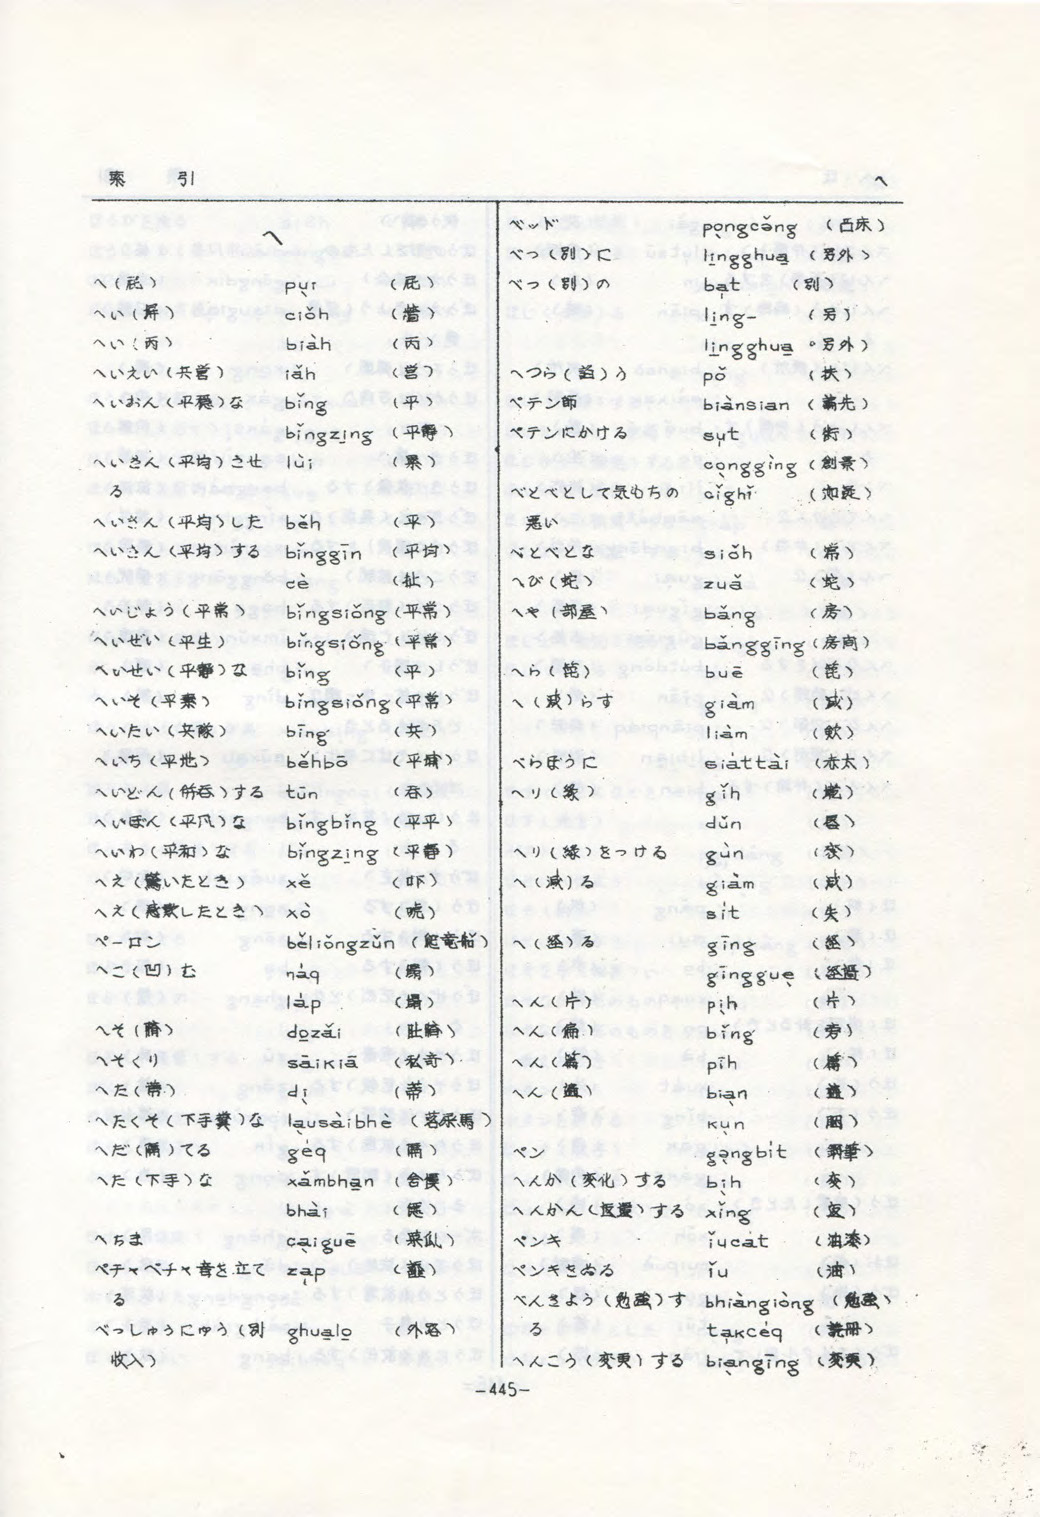 索 引 へ
へ
へ(屁) pui (屁)
へい(屏) ciŏh (墻)
へい(丙) biàh (丙)
へいえい(兵営) iăh (営)
へいおん(平穏)な bĭng (平)
bĭngzing (平静)
へいきん(平均)させ lùi (累)
る
へいきん(平均)した běh (平)
へいきん(平均)する bĭnggīn (平均)
cè
へいじょう(平常) bĭngsiŏng (平常)
へいぜい(平生) bĭngsiŏng (平常)
へいせい(平静)な bĭng (平)
へいそ(平素) bĭngsiŏng (平常)
へいたい(兵隊) bīng (兵)
へいち(平地) běhbō (平埔)
へいどん(併呑)する tūn (呑)
へいぼん(平凡)な bĭngbĭng (平平)
へいわ(平和)な bĭngzing (平静)
へえ(驚いたとき) xě (吓)
へえ(感歎したとき) xò
ペーロン běliŏngzŭn
へこ(凹)む
laṗ (塌)
へそ(臍) dozăi (肚臍)
へそくり sāikiā (私奇)
へた(蒂) di (蒂)
へたくそ(下手糞)な lausaibhe (落屎馬)
へだ(隔)てる géq (隔)
へた(下手)な xămbhan (含慢)
bhài
へちま caiguē (菜瓜)
ペチャペチャ音を立て zap
る
べっしゅうにゅう(別 ghualo (外路)
収入)
ベッド pongcŏng (凸床)
べつ(別)に lingghua (另外)
べつ(別)の bat (別)
ling- (另)
lingghua (另外)
へつら(諂)う pŏ (扶)
ペテン師 biànsian (諞先)
ペテンにかける sut (術)
conggìng (創景)
べとべとして気もちの
悪い
べとべとな siŏh
へび(蛇) zuă (蛇)
へや(部屋) băng (房)
bănggīng (房間)
へら(篦) buē
へ(減)らす giàm (減)
liàm
べらぼうに siáttài
へり(縁) gĭh
dŭn (唇)
へり(縁)をつける gùn
へ(減)る giàm (減)
sít (失)
へ(経)る gīng (経)
gīnggue (経過)
へん(片) pih (片)
へん(偏 bĭng (旁)
へん(篇) pīh (篇)
へん(遍) bian (遍)
kun
ペン gangbit (鋼筆)
へんか(変化)する bih (変)
へんかん(返還)する xĭng (還)
ペンキ ĭucát (油漆)
ペンキをぬる ĭu (油)
べんきょう(勉強)す bhiàngiòng (勉強)
る takcéq
へんこう(変更)する biangīng (変更)
-445-